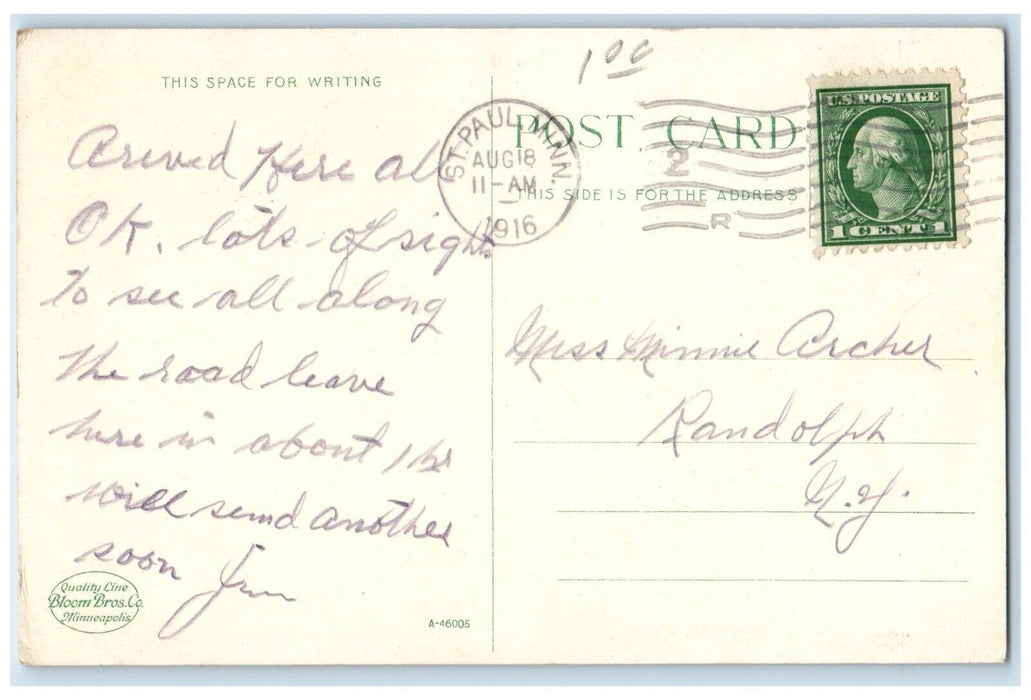 THIS SPACE FOR WRITING
Arived Here all
OK. lots of sights
to see all along
the road leave
here in about 1 hr
will send another
soon
Quality Line
Bloom Bros. Co.
Minneapolis
A-46005
1 00
POST CARD
THIS SIDE IS FOR THE ADDRESS
ST. PAUL, MINN.
AUG 18
11-AM
1916
2
R
U.S. POSTAGE
1 CENT 1
Miss Minnie Archer
Randolph
N.Y.